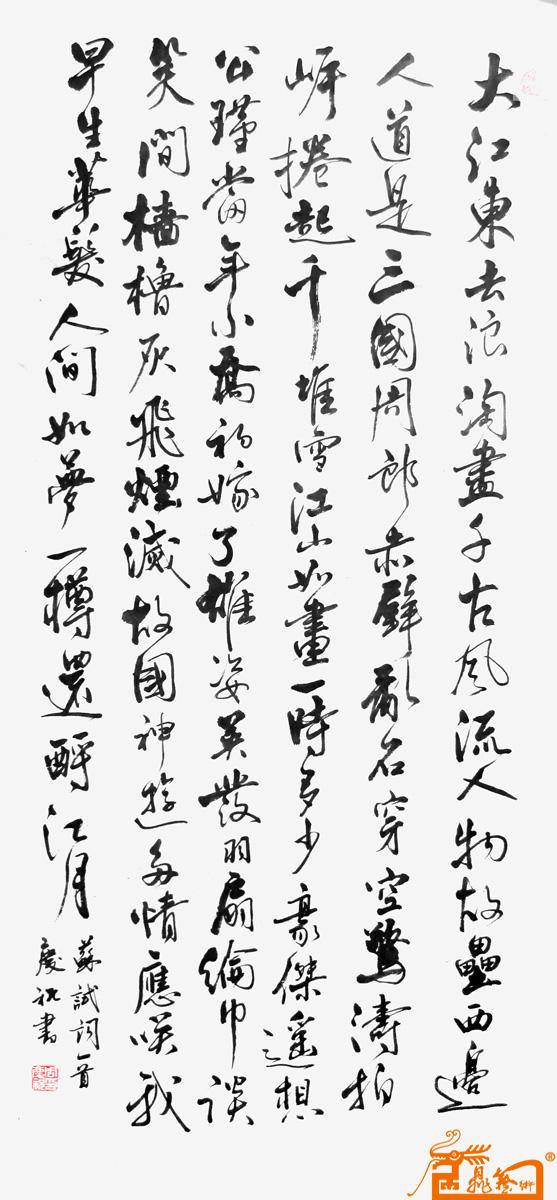 大江東去浪淘盡千古風流人物故壘西邊
人道是三國周郎赤壁亂石穿空驚濤拍
岸捲起千堆雪江山如畫一時多少豪傑遥想
公瑾當年小喬初嫁了雄姿英發羽扇綸巾談
笑間檣櫓灰飛煙滅故國神遊多情應笑我
早生華髮人間如夢一樽還酹江月
蘇軾詞一首
慶祝書